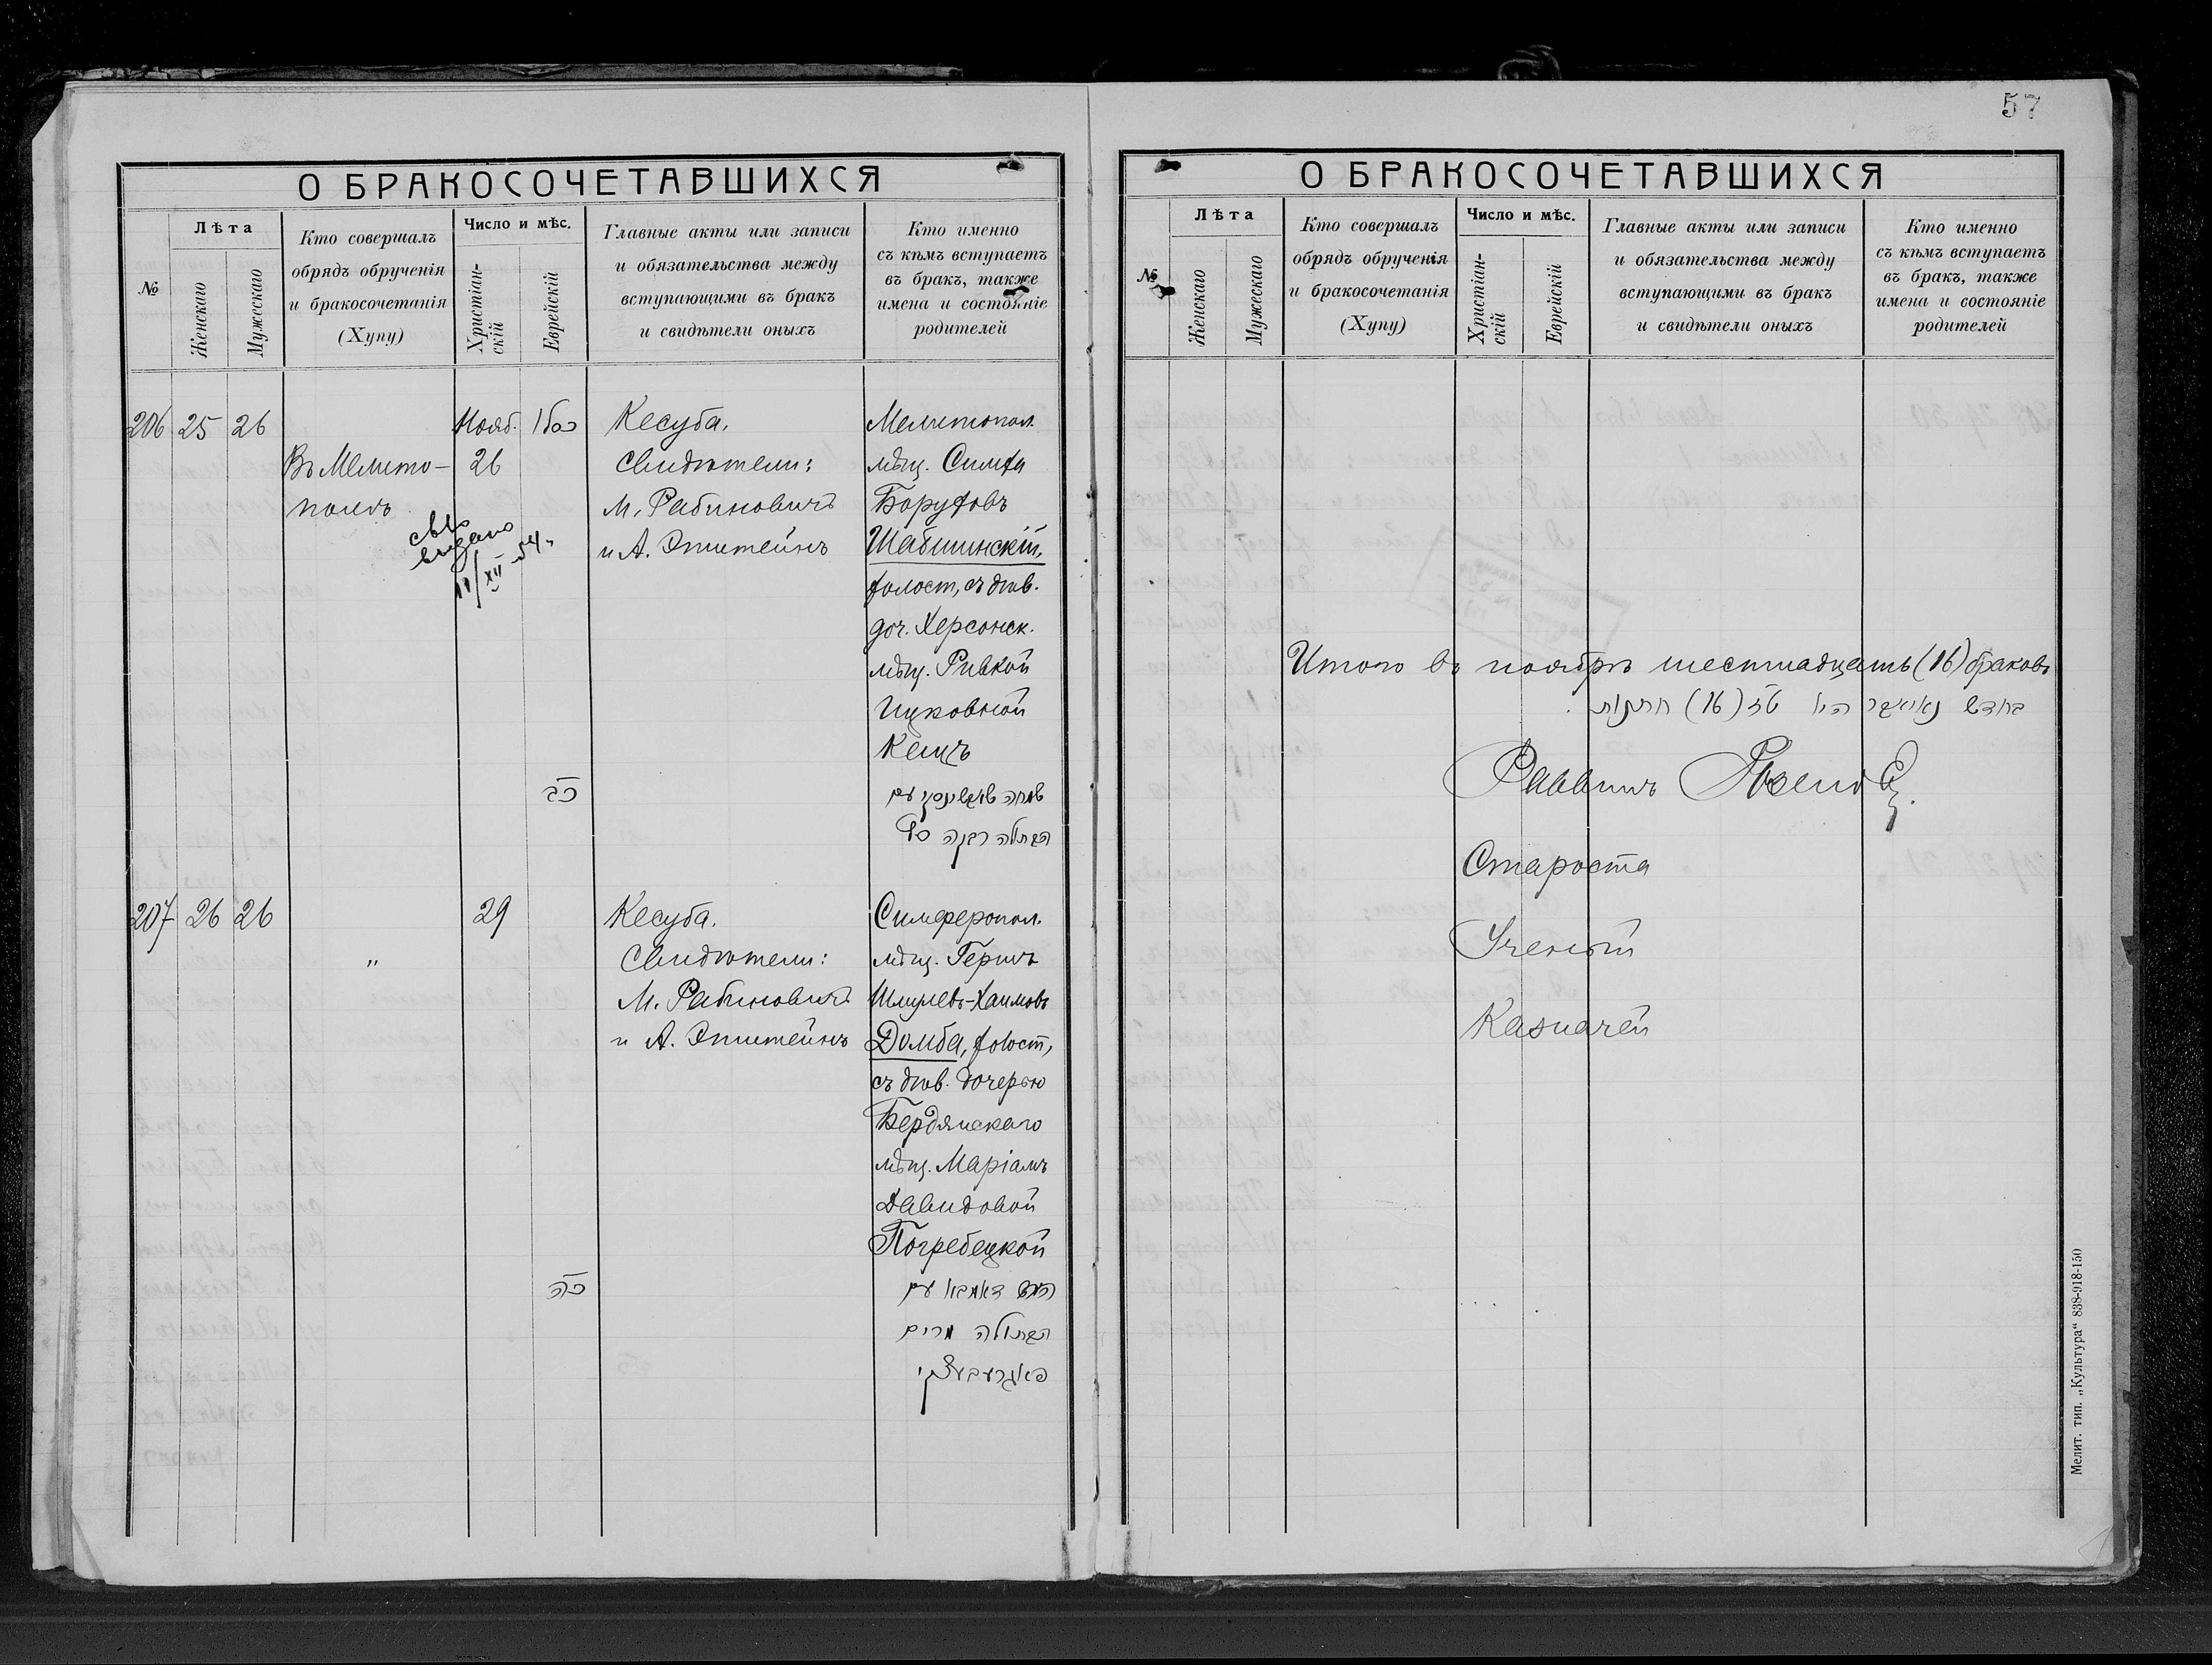 57
О БРАКОСОЧЕТАВШИХСЯ
№
Лѣта
Женскаго
Мужескаго
Кто совершалъ
обрядъ обрученія
и бракосочетанія
(Хупу)
Число и мѣс.
Христіан-
скій
Еврейскій
Главные акты или записи
и обязательства между
вступающими въ бракъ
и свидѣтели оныхъ
Кто именно
съ кѣмъ вступаетъ
въ бракъ, также
имена и состояніе
родителей
206 25 26
Въ Мелито-
полѣ
Нояб.
26
св-во
выдано
11/XII-54г.
כג
Кесуба.
Свидѣтели:
М. Рабиновичъ
и А. Эпштейнъ
Мелитопол.
мѣщ. Симха
Боруховъ
Шабшинскій,
холост, съ дѣв.
доч. Херсонск.
мѣщ. Ривкой
Ицковной
Кацъ
שמחה שאבשינסקי עם
הבתולה רבקה כץ
207 26 26
"
29
כה
Кесуба.
Свидѣтели:
М. Рабиновичъ
и А. Эпштейнъ
Симферопол.
мѣщ. Гершъ
Шмулевъ-Хаимовъ
Домба, холост,
съ дѣв. дочерью
Бердянскаго
мѣщ. Маріамъ
Давидовой
Погребецкой
הירש דאמבא עם
הבתולה מרים
פאגרעבעצקי
О БРАКОСОЧЕТАВШИХСЯ
№
Лѣта
Женскаго
Мужескаго
Кто совершалъ
обрядъ обрученія
и бракосочетанія
(Хупу)
Число и мѣс.
Христіан-
скій
Еврейскій
Главные акты или записи
и обязательства между
вступающими въ бракъ
и свидѣтели оныхъ
Кто именно
съ кѣмъ вступаетъ
въ бракъ, также
имена и состояніе
родителей
Итого въ ноябрѣ шестнадцать (16) браковъ
בחדש נאיאבר היו טז (16) חתונות
Раввинъ
Староста
Ученый
Казначей
Мелит. тип. „Культура“ 838-918-150